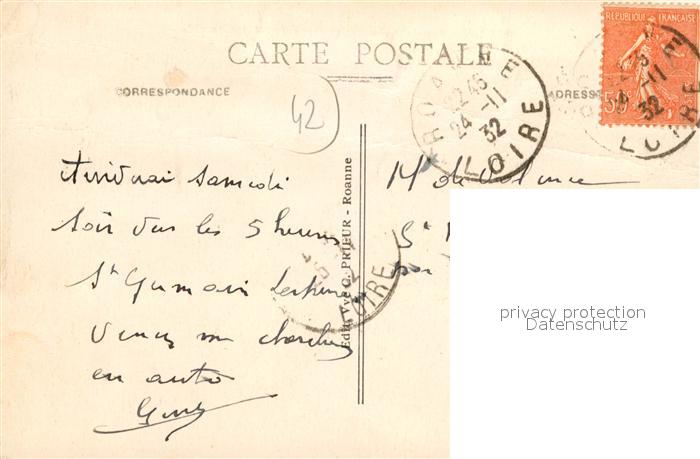 CARTE POSTALE
CORRESPONDANCE
ADRESSE
RÉPUBLIQUE FRANÇAISE
50c
ROANNE
22 45
24 -11
32
LOIRE
-11
32
LOIRE
42
Arriverai samedi
soir vers les 5 heures
St Germain
Venez me chercher
en auto
M de
St
par
LOIRE
Edit. Vve C. PRIEUR - Roanne
privacy protection
Datenschutz